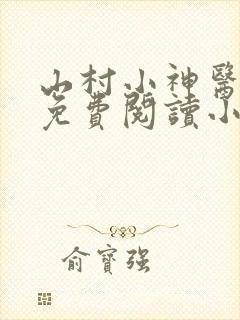 山村小神醫
免費閱讀小
俞寶強